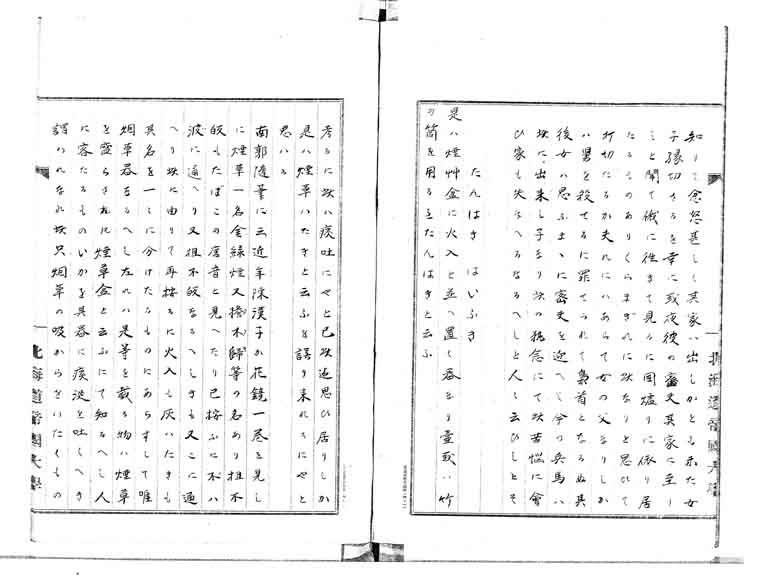 知りて念怒甚しく其家ハ出しかとも求た女
子縁切さるを幸に或夜彼の密夫其家に至り
しと聞て俄に往きて見るに囲爐りに依り居
たるものありくらまぎれに坎なりと思ひて
打切たるか夫れにハあらて女の父なりしか
ハ罢を殺せるに罪てられて梟首となるぬ其
後女ハ思ふまゝに密夫を迎へて今の兵馬ハ
坎に出来し子なり坎の執念にて坎苦悩に會
ひ家も失はへるなるへしと人々云ひしとそ
たんはき はいふき
是ハ煙艸盆に火入と並へ置し呑をり壷或ハ竹
の筒を用るをたんはきと云ふ
考るに坎ハ痰吐にやと已坎迄思ひ居りしか
是ハ煙草ハたきと云ふを誤り来れるにやと
思ハる
南郭随筆に云近年陳漢子か花鏡一巻を見し
に煙草一名金絲煙又擔不歸等の名あり担不
皈もたばこの唐音と見へたり已按ふに不ハ
波に通へり又担不皈なるへしきも又こに通
へり坎に由りて再按るに火入も灰いたきも
其名を一々に分けたるものにあらすして唯
烟草呑をるへし左れハ是等を載る物ハ煙草
を盛らされハ煙草盆と云ふにて知るへし人
に客たるものいかを其器に痰波を吐くへき
謂ハれなれ坎只烟草の吸からをいたくもの
北海道帝國大學
北海道帝國大學